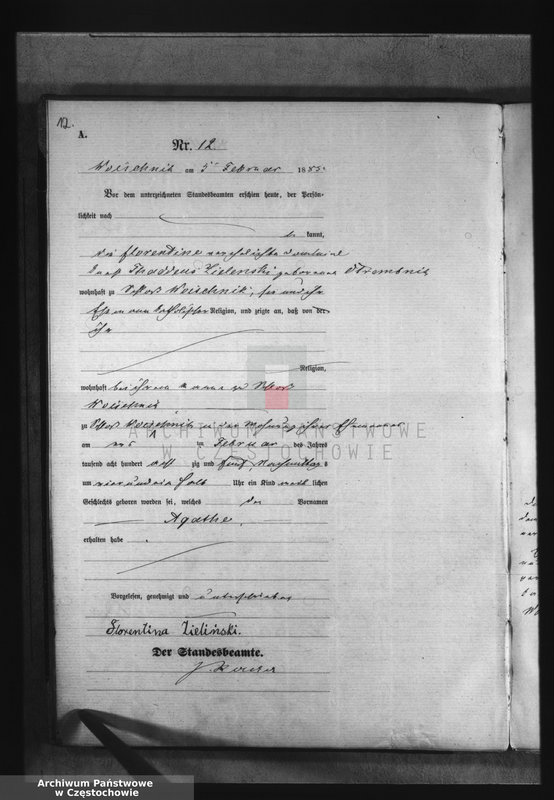 12.
A.
Nr. 12.
Woischnik am 5ten Februar 1885.
Vor dem unterzeichneten Standesbeamten erschien heute, der Persön-
lichkeit nach
be kannt,
die Florentine verehelichte
Thaddeus Zielenski geborene Strembnik
wohnhaft zu Schloss Woischnik,
katholischer Religion, und zeigte an, daß von der-
ihr
Religion,
wohnhaft bei ihrem Manne zu Schloss
Woischnik
zu Schloss Woischnik in der Wohnung ihres Ehemannes
am Februar des Jahres
tausend acht hundert acht zig und fünf Nachmittag s
um vier und ein halb Uhr ein Kind weib lichen
Geschlechts geboren worden sei, welches den Vornamen
Agathe,
erhalten habe.
Vorgelesen, genehmigt und unterschrieben
Florentina Zieliński.
Der Standesbeamte.
ARCHIWUM PAŃSTWOWE
W CZĘSTOCHOWIE
Archiwum Państwowe
w Częstochowie